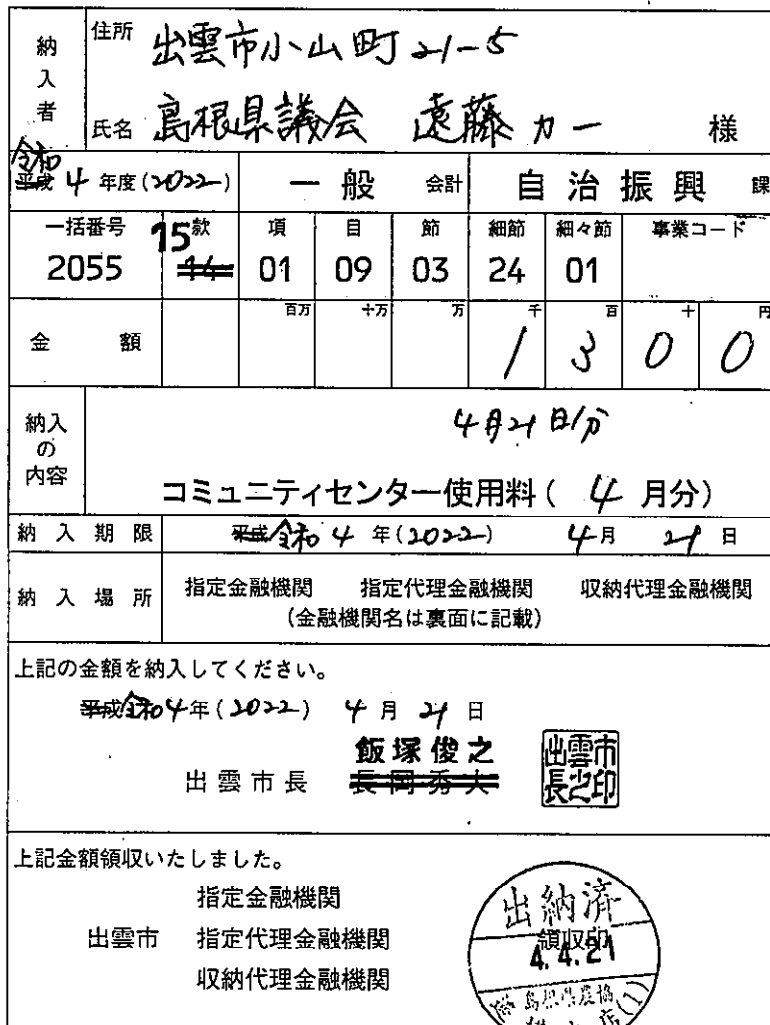 納入者
住所 出雲市小山町21-5
氏名 島根県議会 遠藤力一 様
令和
平成 4 年度(2022) 一般 会計 自治振興 課
一括番号 款 項 目 節 細節 細々節 事業コード
15
2055 14 01 09 03 24 01
百万 十万 万 千 百 十 円
金額 1 3 0 0
納入の内容
4月21日分
コミュニティセンター使用料( 4 月分)
納入期限 平成 令和 4 年(2022) 4月 21 日
納入場所 指定金融機関 指定代理金融機関 収納代理金融機関
(金融機関名は裏面に記載)
上記の金額を納入してください。
平成 令和 4年(2022) 4月 21 日
飯塚俊之
出雲市長 長岡秀人
出雲市
長之印
上記金額領収いたしました。
指定金融機関
出雲市 指定代理金融機関
収納代理金融機関
出納済
領収印
4.4.21
島根県農協